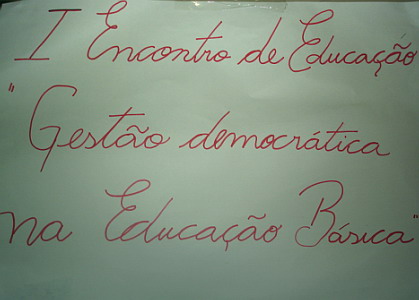 I Encontro de Educação
"Gestão democrática
na Educação Básica"